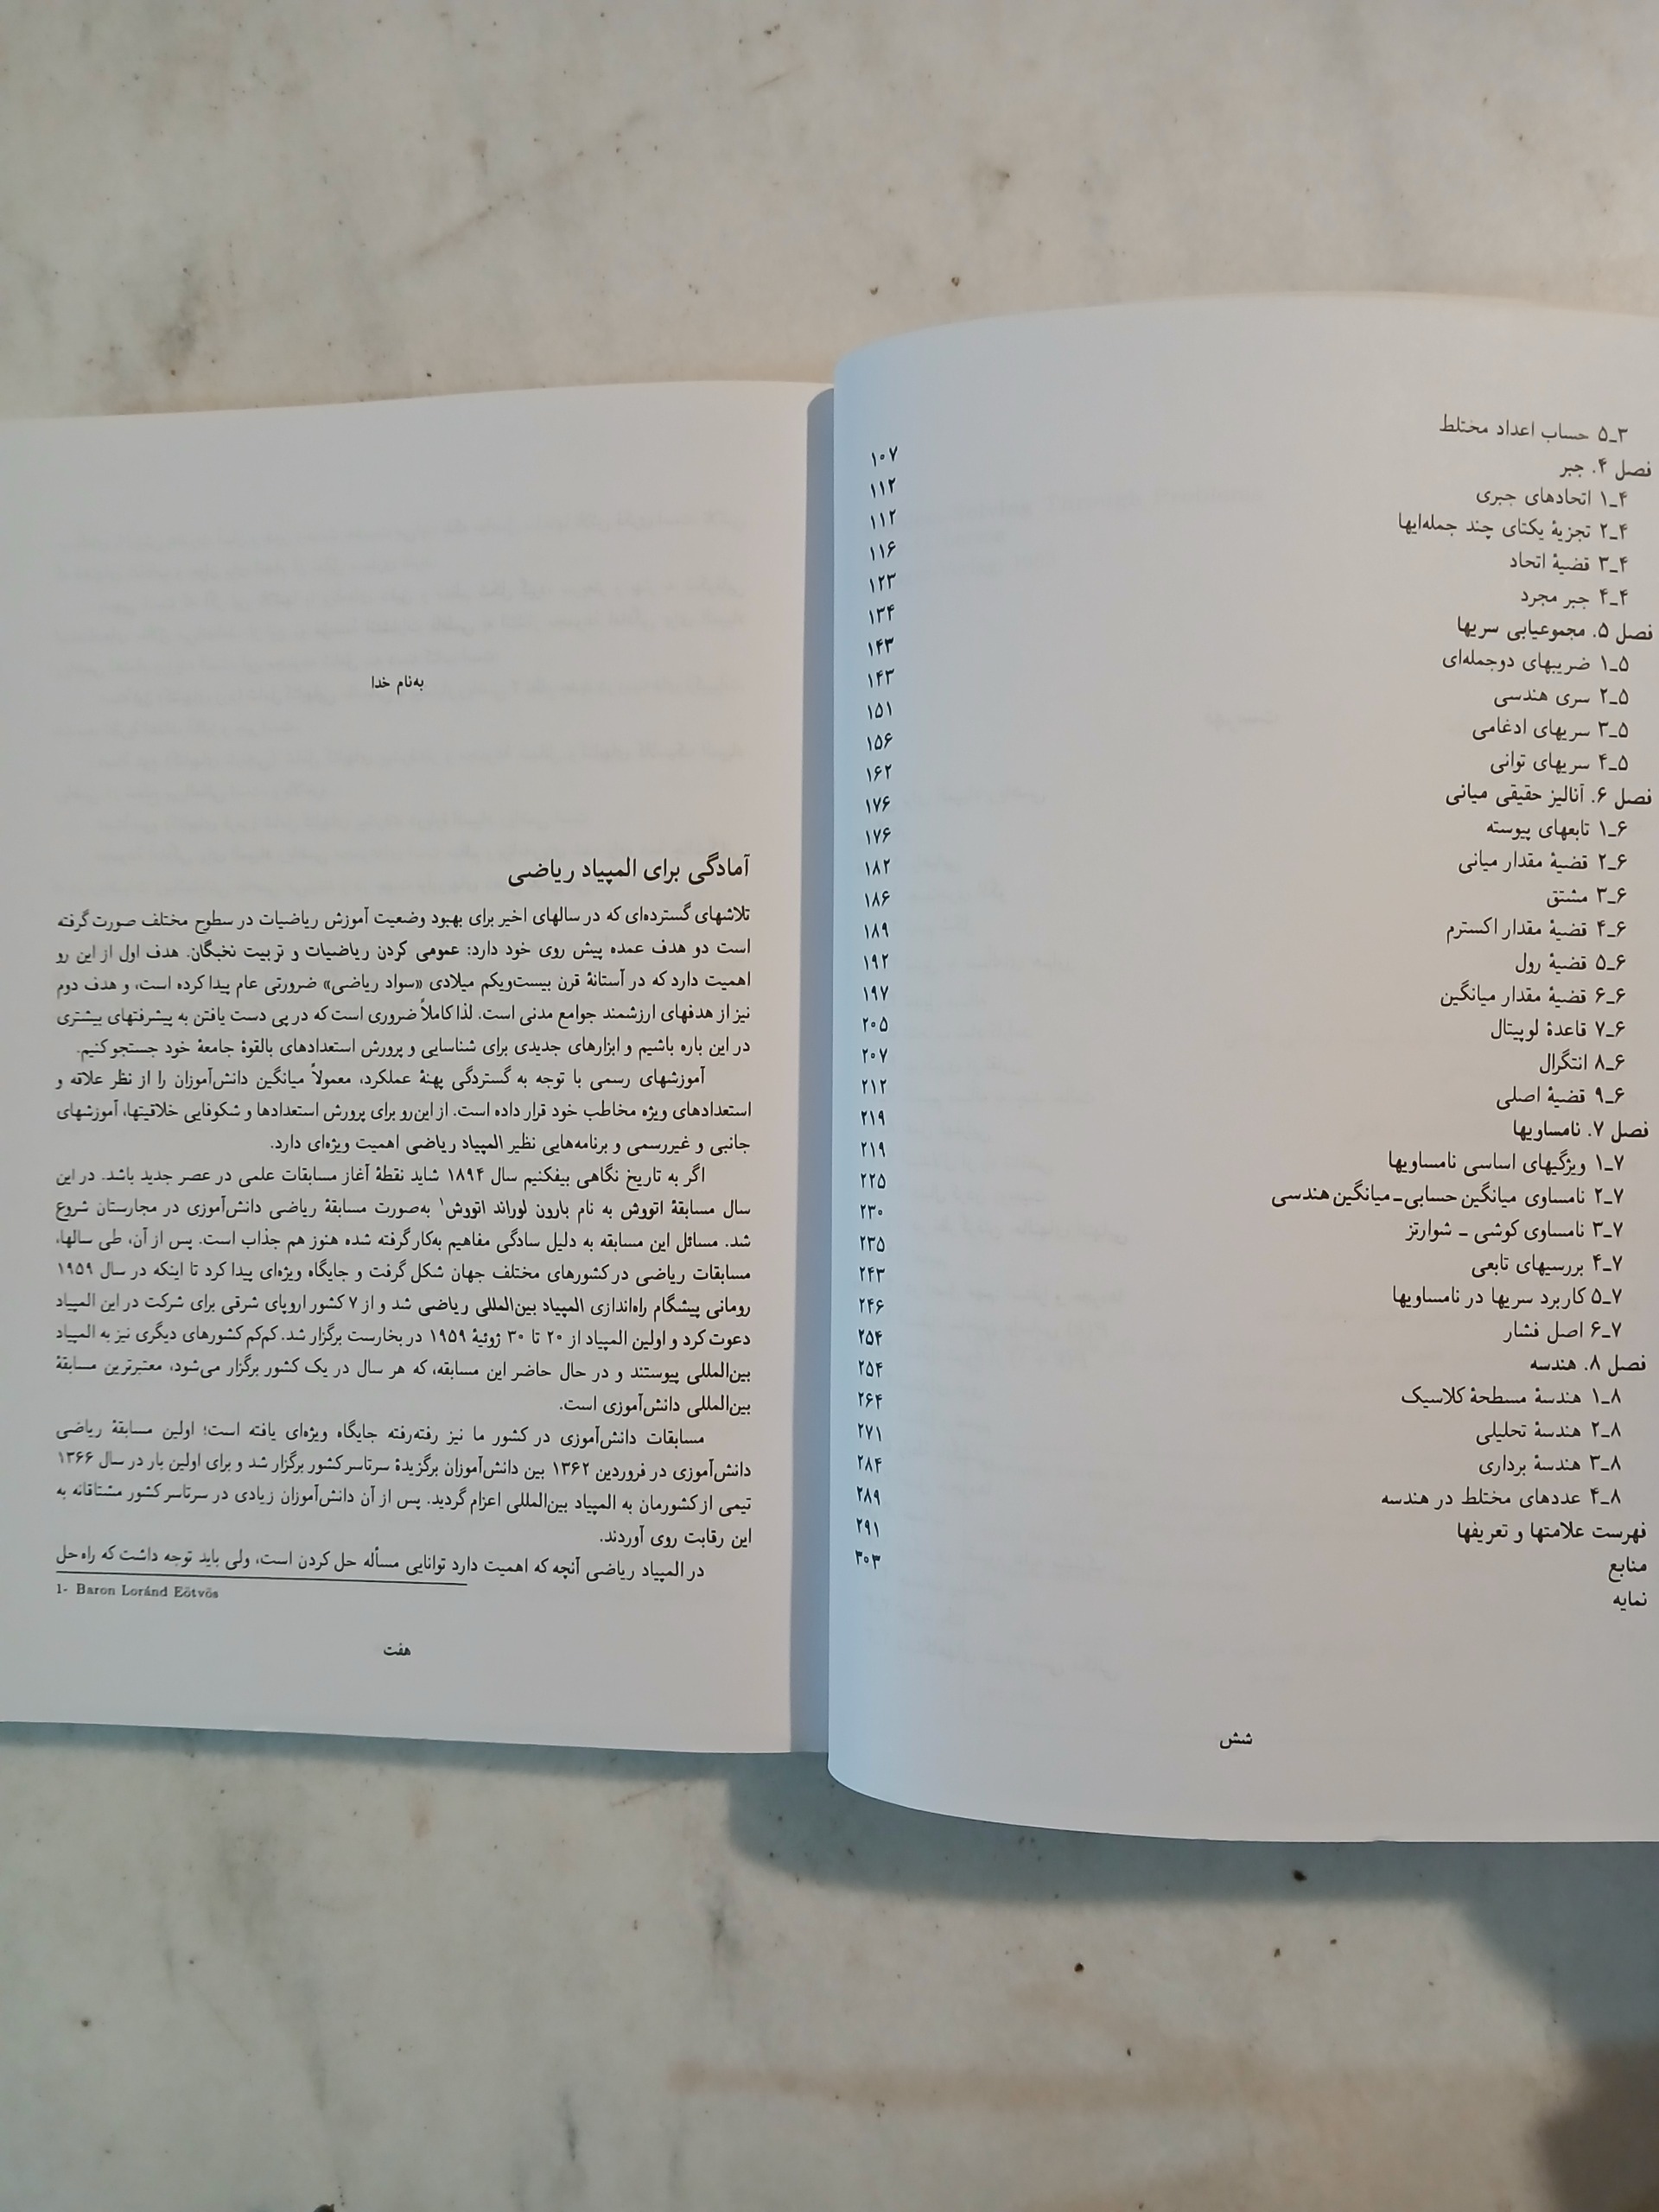 ۳ـ۵ حساب اعداد مختلط ۱۰۷
فصل ۴. جبر ۱۱۲
۴ـ۱ اتحادهای جبری ۱۱۲
۴ـ۲ تجزیهٔ یکتای چند جمله‌ایها ۱۱۶
۴ـ۳ قضیهٔ اتحاد ۱۲۳
۴ـ۴ جبر مجرد ۱۳۴
فصل ۵. مجموعیابی سریها ۱۴۳
۵ـ۱ ضریبهای دوجمله‌ای ۱۴۳
۵ـ۲ سری هندسی ۱۵۱
۵ـ۳ سریهای ادغامی ۱۵۶
۵ـ۴ سریهای توانی ۱۶۲
فصل ۶. آنالیز حقیقی میانی ۱۷۶
۶ـ۱ تابعهای پیوسته ۱۷۶
۶ـ۲ قضیهٔ مقدار میانی ۱۸۲
۶ـ۳ مشتق ۱۸۶
۶ـ۴ قضیهٔ مقدار اکسترم ۱۸۹
۶ـ۵ قضیهٔ رول ۱۹۲
۶ـ۶ قضیهٔ مقدار میانگین ۱۹۷
۶ـ۷ قاعدهٔ لوپیتال ۲۰۵
۶ـ۸ انتگرال ۲۰۷
۶ـ۹ قضیهٔ اصلی ۲۱۲
فصل ۷. نامساویها ۲۱۹
۷ـ۱ ویژگیهای اساسی نامساویها ۲۱۹
۷ـ۲ نامساوی میانگین حسابی ـ میانگین هندسی ۲۲۵
۷ـ۳ نامساوی کوشی ـ شوارتز ۲۳۰
۷ـ۴ بررسیهای تابعی ۲۳۵
۷ـ۵ کاربرد سریها در نامساویها ۲۴۳
۷ـ۶ اصل فشار ۲۴۶
فصل ۸. هندسه ۲۵۴
۸ـ۱ هندسهٔ مسطحهٔ کلاسیک ۲۵۴
۸ـ۲ هندسهٔ تحلیلی ۲۶۴
۸ـ۳ هندسهٔ برداری ۲۷۱
۸ـ۴ عددهای مختلط در هندسه ۲۸۴
فهرست علامتها و تعریفها ۲۸۹
منابع ۲۹۱
نمایه ۳۰۳
شش
به‌نام خدا
آمادگی برای المپیاد ریاضی
تلاشهای گسترده‌ای که در سالهای اخیر برای بهبود وضعیت آموزش ریاضیات در سطوح مختلف صورت گرفته
است دو هدف عمده پیش روی خود دارد: عمومی کردن ریاضیات و تربیت نخبگان. هدف اول از این رو
اهمیت دارد که در آستانهٔ قرن بیست‌ویکم میلادی «سواد ریاضی» ضرورتی عام پیدا کرده است، و هدف دوم
نیز از هدفهای ارزشمند جوامع مدنی است. لذا کاملاً ضروری است که در پی دست یافتن به پیشرفتهای بیشتری
در این باره باشیم و ابزارهای جدیدی برای شناسایی و پرورش استعدادهای بالقوهٔ جامعهٔ خود جستجو کنیم.
آموزشهای رسمی با توجه به گستردگی پهنهٔ عملکرد، معمولاً میانگین دانش‌آموزان را از نظر علاقه و
استعدادهای ویژه مخاطب خود قرار داده است. از این‌رو برای پرورش استعدادها و شکوفایی خلاقیتها، آموزشهای
جانبی و غیررسمی و برنامه‌هایی نظیر المپیاد ریاضی اهمیت ویژه‌ای دارد.
اگر به تاریخ نگاهی بیفکنیم سال ۱۸۹۴ شاید نقطهٔ آغاز مسابقات علمی در عصر جدید باشد. در این
سال مسابقهٔ اتووش به نام بارون لوراند اتووش۱ به‌صورت مسابقهٔ ریاضی دانش‌آموزی در مجارستان شروع
شد. مسائل این مسابقه به دلیل سادگی مفاهیم به‌کار گرفته شده هنوز هم جذاب است. پس از آن، طی سالها،
مسابقات ریاضی در کشورهای مختلف جهان شکل گرفت و جایگاه ویژه‌ای پیدا کرد تا اینکه در سال ۱۹۵۹
رومانی پیشگام راه‌اندازی المپیاد بین‌المللی ریاضی شد و از ۷ کشور اروپای شرقی برای شرکت در این المپیاد
دعوت کرد و اولین المپیاد از ۲۰ تا ۳۰ ژوئیهٔ ۱۹۵۹ در بخارست برگزار شد. کم‌کم کشورهای دیگری نیز به المپیاد
بین‌المللی پیوستند و در حال حاضر این مسابقه، که هر سال در یک کشور برگزار می‌شود، معتبرترین مسابقهٔ
بین‌المللی دانش‌آموزی است.
مسابقات دانش‌آموزی در کشور ما نیز رفته‌رفته جایگاه ویژه‌ای یافته است؛ اولین مسابقهٔ ریاضی
دانش‌آموزی در فروردین ۱۳۶۲ بین دانش‌آموزان برگزیدهٔ سرتاسر کشور برگزار شد و برای اولین بار در سال ۱۳۶۶
تیمی از کشورمان به المپیاد بین‌المللی اعزام گردید. پس از آن دانش‌آموزان زیادی در سرتاسر کشور مشتاقانه به
این رقابت روی آوردند.
در المپیاد ریاضی آنچه که اهمیت دارد توانایی مسأله حل کردن است، ولی باید توجه داشت که راه حل
1- Baron Loránd Eötvös
هفت